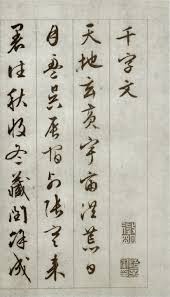 千字文
天地玄黄宇宙洪荒日
月盈昃辰宿列张寒来
暑往秋收冬藏闰余成